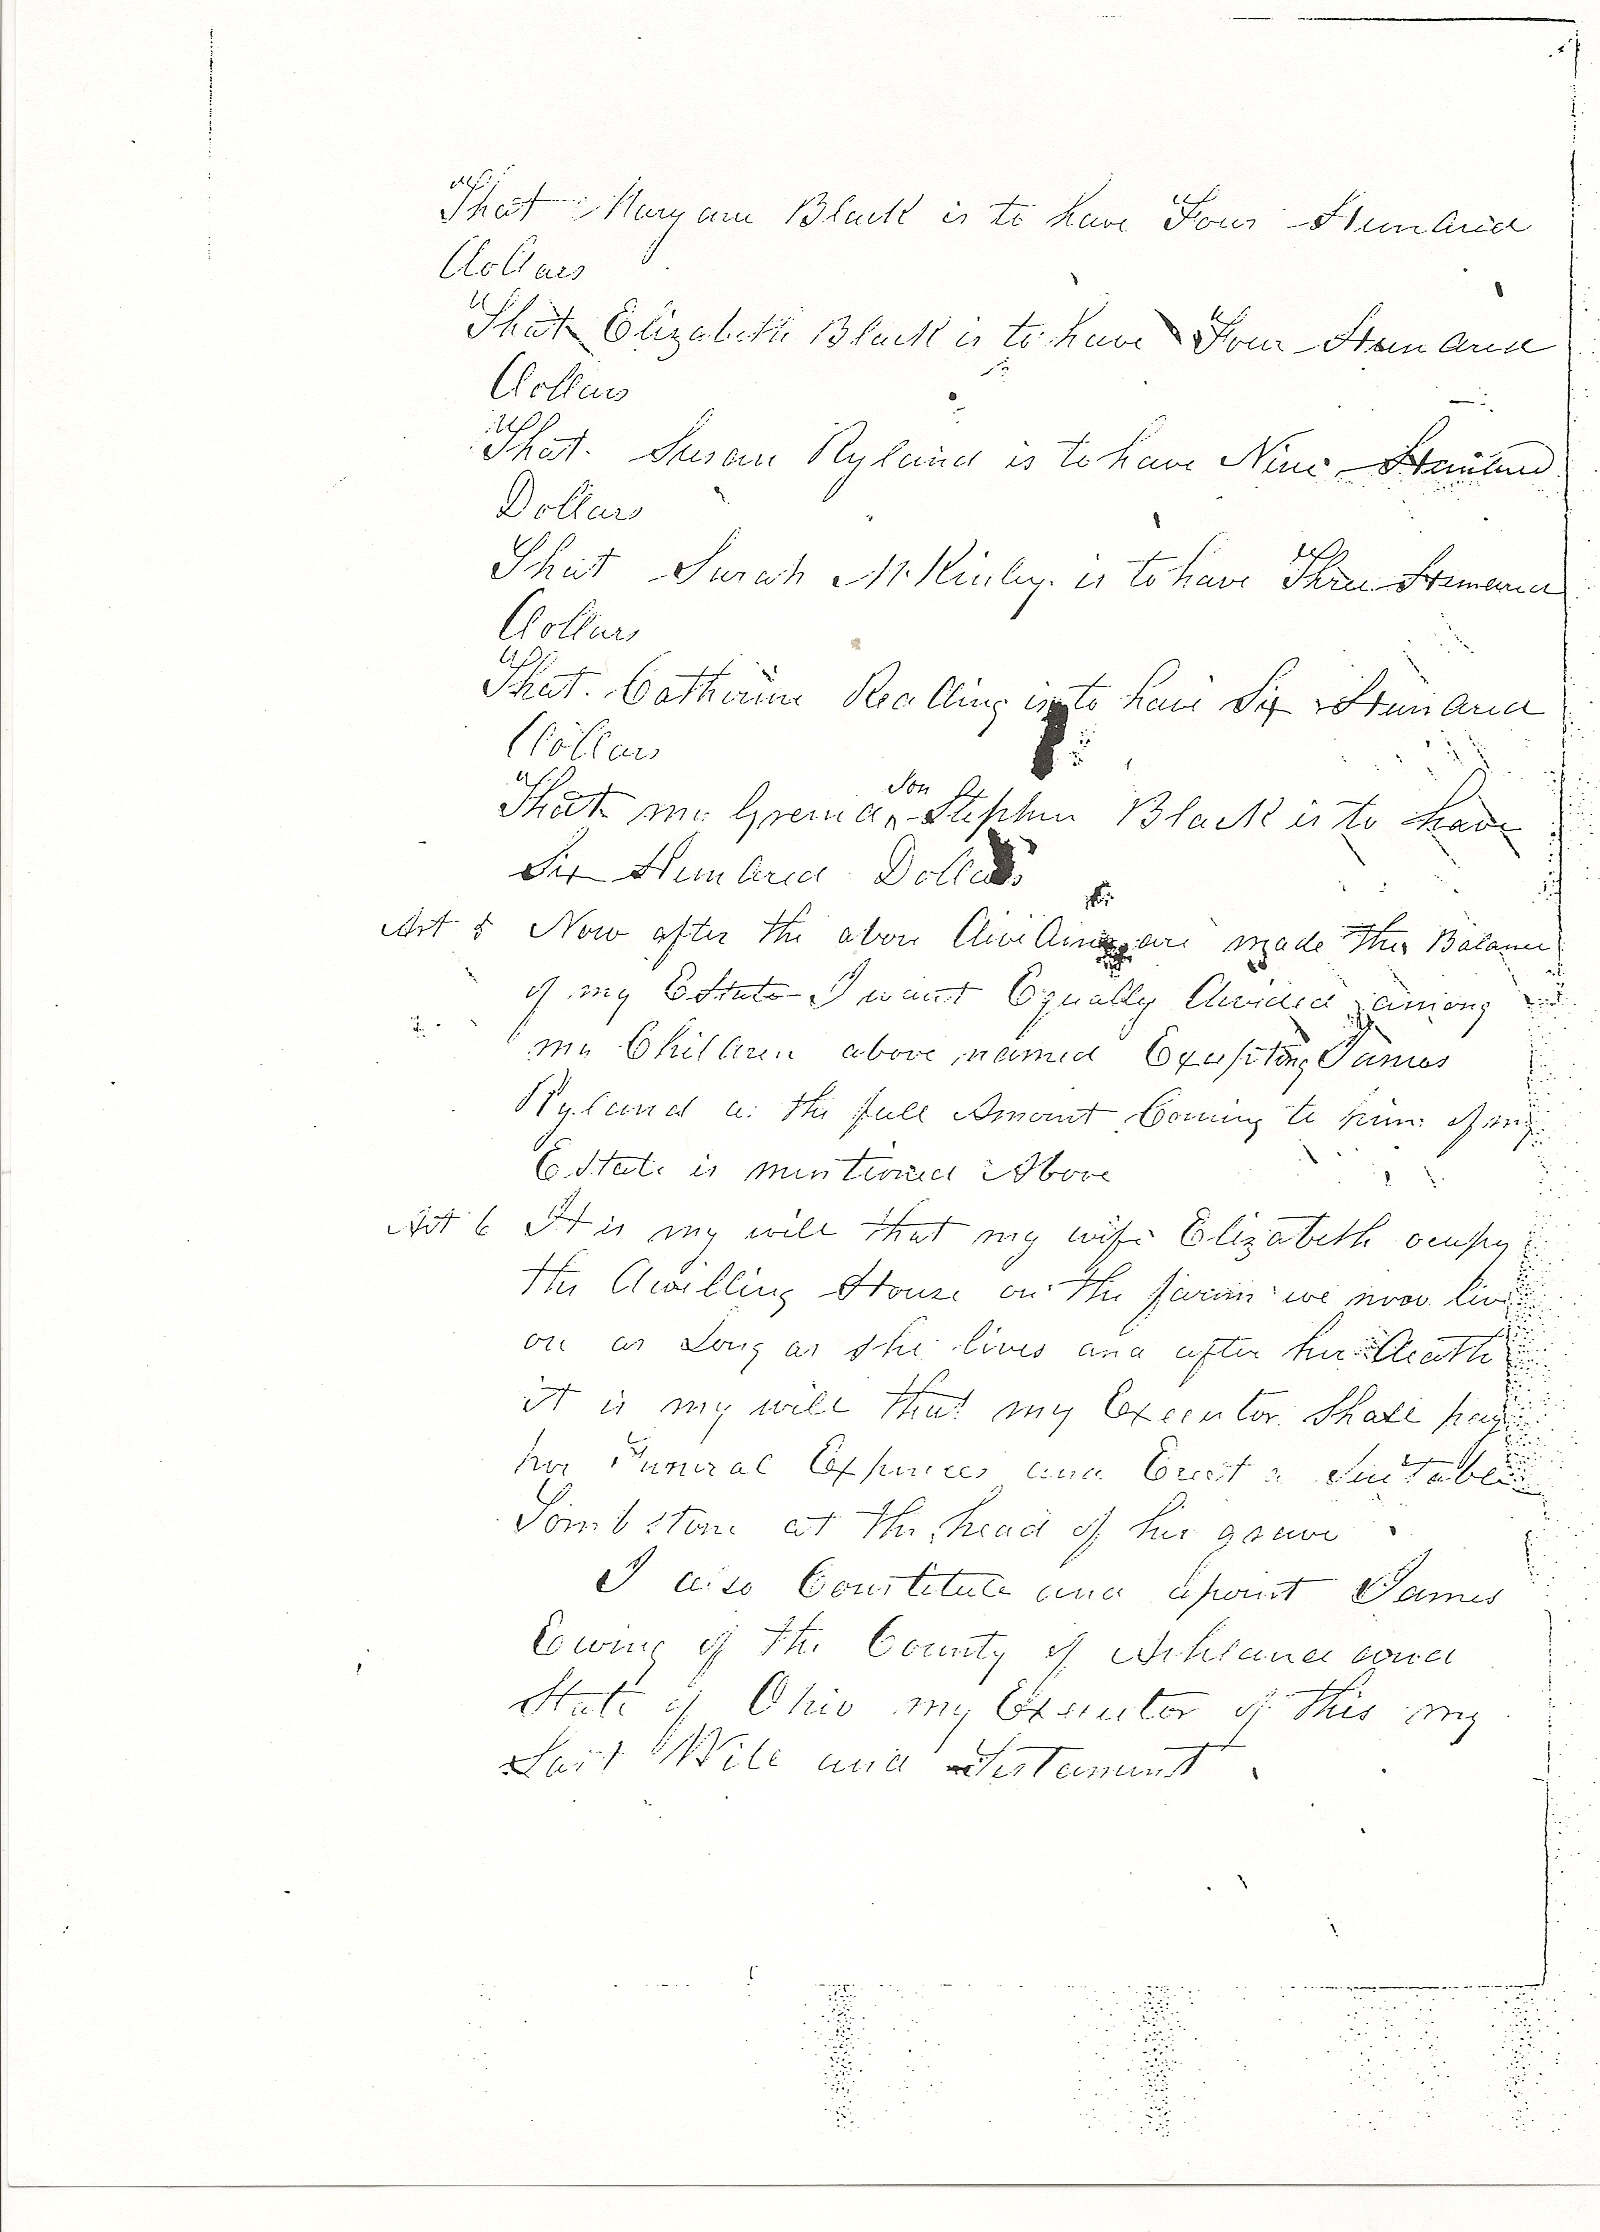 That Maryann Black is to have Four Hundred
dollars
That Elizabeth Black is to have Four Hundred
dollars
That Susan Ryland is to have Nine Hundred
Dollars
That Sarah McKinley is to have Three Hundred
dollars
That Catherine Redding is to have Six Hundred
dollars
That my Grand son Stephen Black is to have
Six Hundred Dollars
Art 5 Now after the above are made the Balance
of my Estate I want Equally divided among
my Children above named Excepting James
Ryland as the full Amount Coming to him of my
Estate is mentioned Above
Art 6 It is my will that my wife Elizabeth ocupy
the dwilling House on the farm we now live
on as Long as she lives and after her death
it is my will that my Executor Shall pay
her Funeral Expences and Erect a Suitable
Tomb stone at the head of her grave
I also Constitute and apoint James
Ewing of the County of Ashland and
State of Ohio my Executor of this my
Last Will and Testament